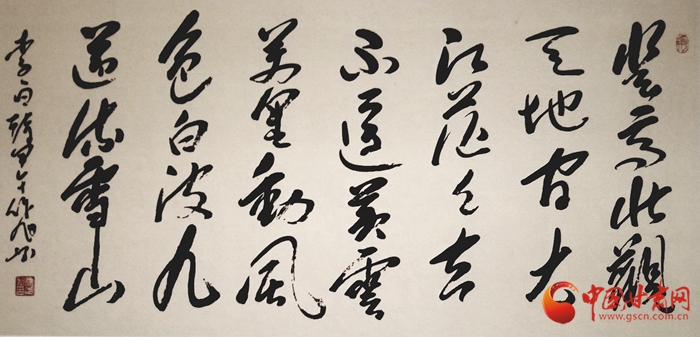 登高壮觀
天地间大
江茫々去
不還黃雲
萬里動風
色白波九
道流雪山
李白詩甲午
中国甘肃网
www.gscn.com.cn